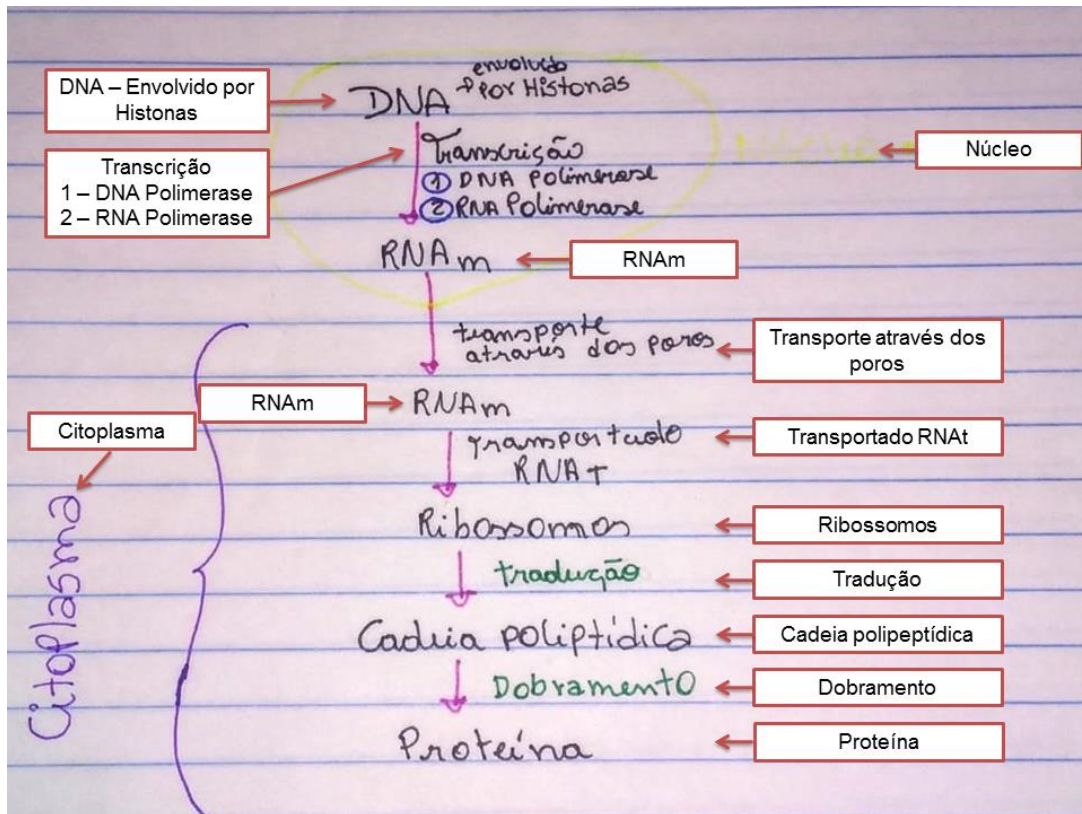 envolvido
DNA → por Histonas
DNA – Envolvido por
Histonas
Transcrição
① DNA Polimerase
② RNA Polimerase
Transcrição
1 – DNA Polimerase
2 – RNA Polimerase
Núcleo
RNAm
RNAm
transporte
através dos poros
Transporte através dos
poros
RNAm
RNAm
Citoplasma
Citoplasma
transportado
RNAt
Transportado RNAt
Ribossomos
Ribossomos
tradução
Tradução
Cadeia poliptídica
Cadeia polipeptídica
Dobramento
Dobramento
Proteína
Proteína